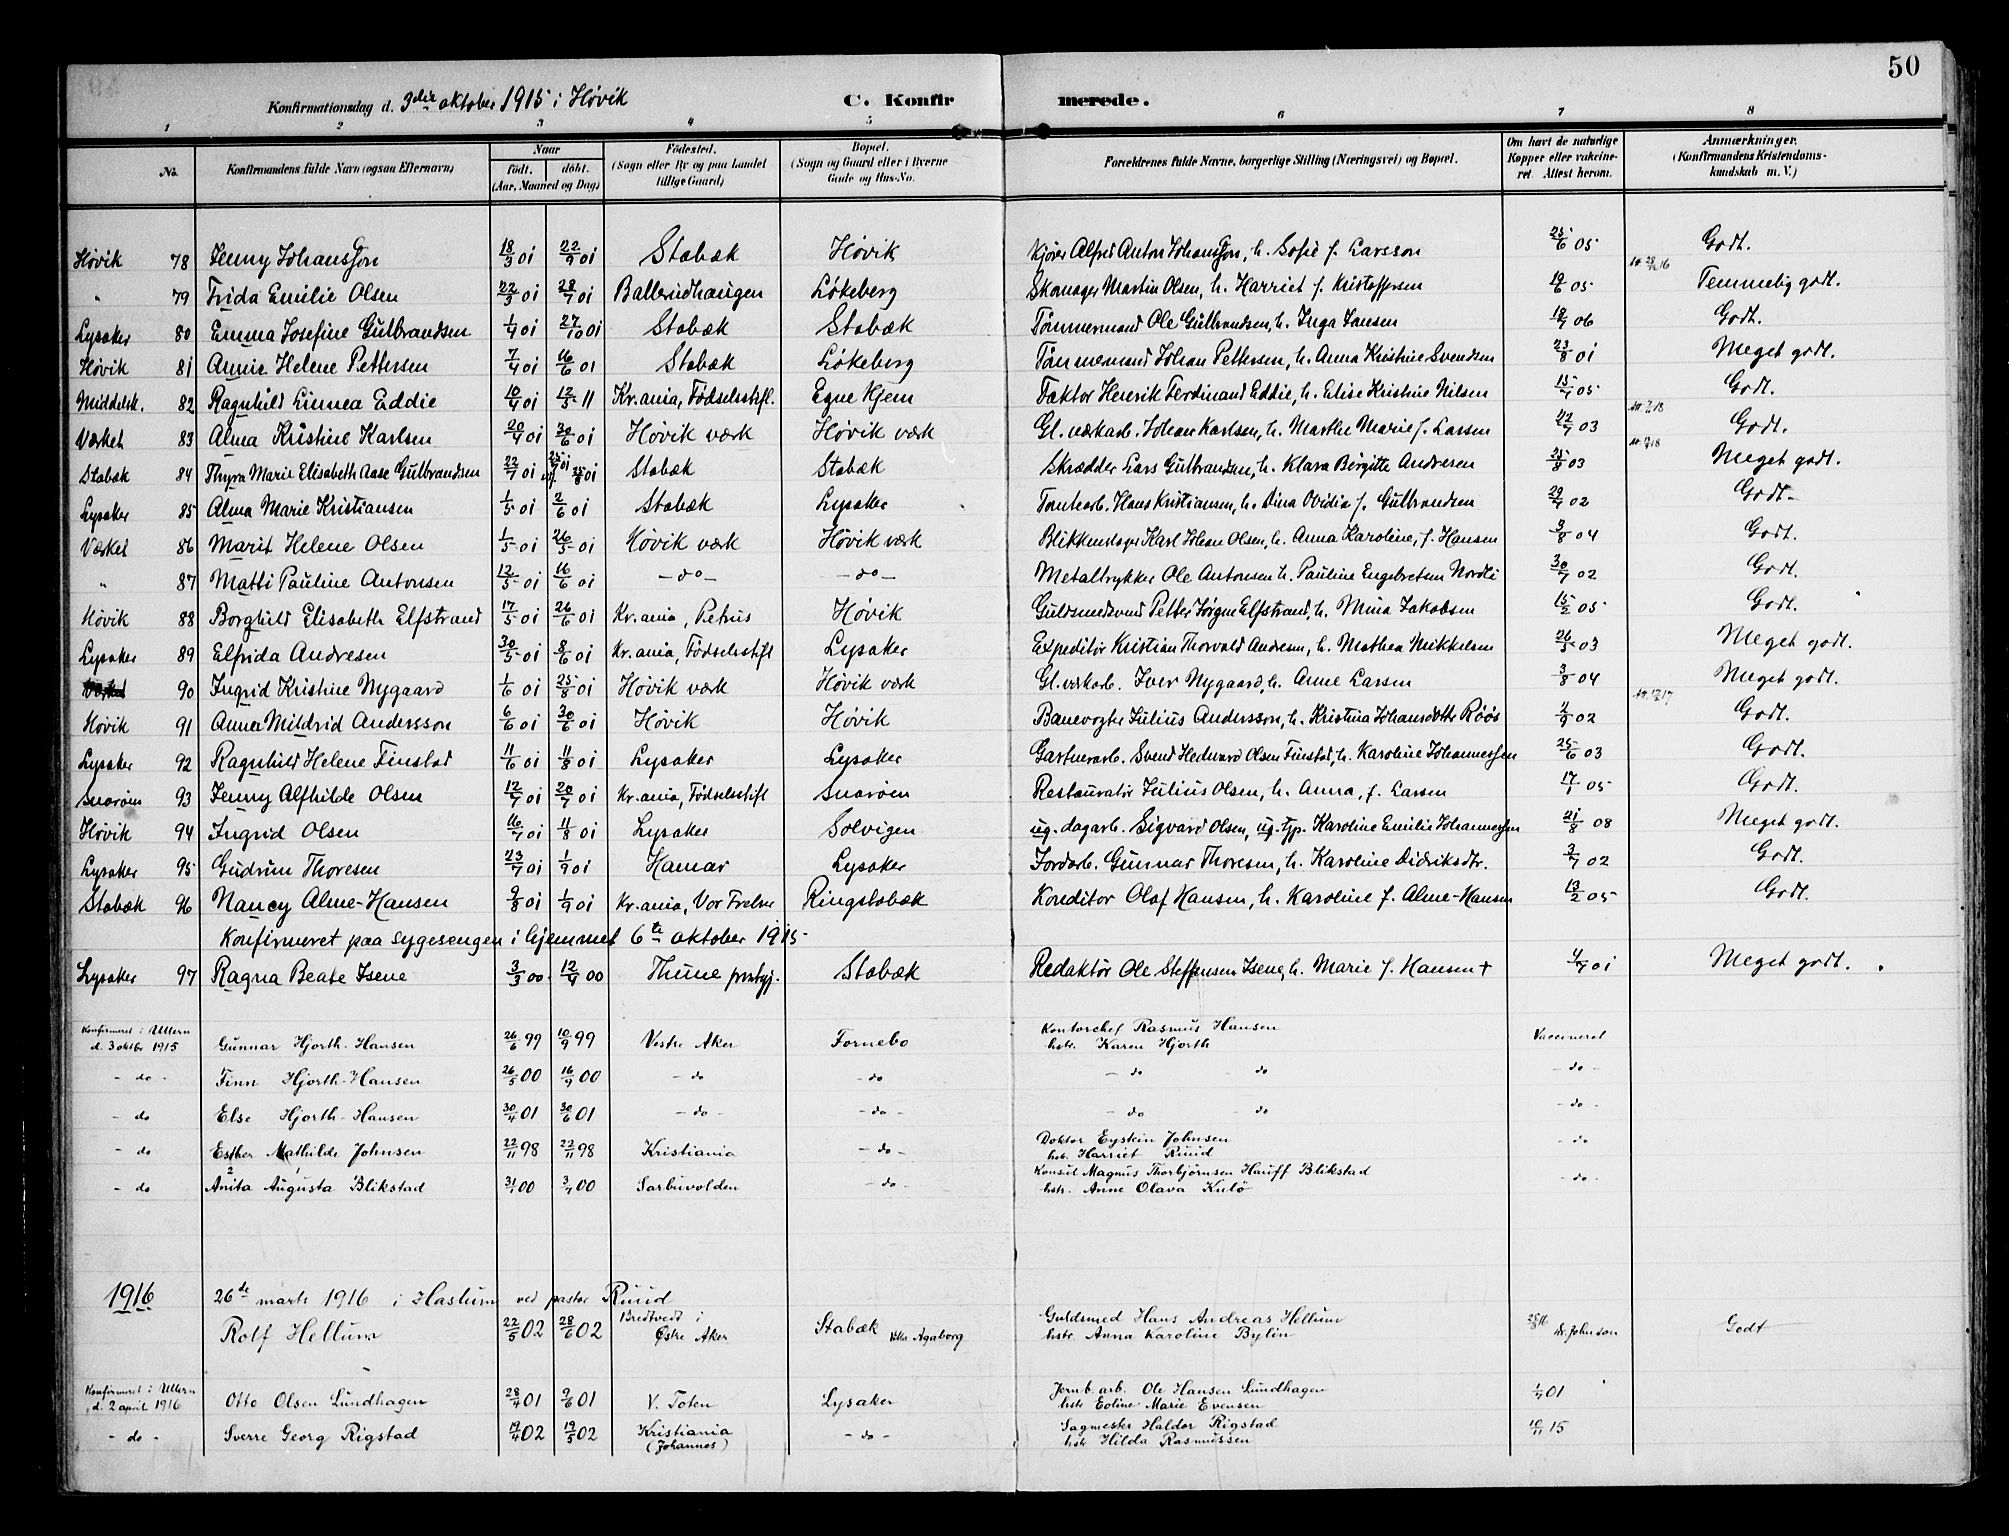 50
Konfirmationsdag d. 3die oktober 1915 i Høvik C. Konfirmerede.
1 2 3 4 5 6 7 8
No. Konfirmandens fulde Navn (ogsaa Efternavn) Naar født. døbt. (Aar, Maaned og Dag) Fødested. (Sogn eller By og paa Landet tillige Gaard) Bopæl. (Sogn og Gaard eller i Byerne Gade og Hus-No.) Forældrenes fulde Navne, borgerlige Stilling (Næringsvei) og Bopæl. Om havt de naturlige Kopper eller vakcineret. Attest herom. Anmærkninger. (Konfirmandens Kristendomskundskab m. V.)
Høvik 78 Jenny Johansson 18/3 01 22/9 01 Stabæk Høvik Kjører Alfred Anton Johansson, h. Sofie f. Larsson 25/6 05 Godt.
" 79 Frida Emilie Olsen 22/3 01 28/7 01 Ballerudhaugen Løkeberg Skomager Martin Olsen, h. Harriet f. Kristoffersen 19/6 05 Temmelig godt.
Lysaker 80 Emma Josefine Gulbrandsen 1/4 01 27/10 01 Stabæk Stabæk Tømmermand Ole Gulbrandsen, h. Inga Jansen 18/7 06 Godt.
Høvik 81 Annie Helene Pettersen 7/4 01 16/6 01 Stabæk Løkeberg Tømmermand Johan Pettersen, h. Anna Kristine Svendsen 23/8 01 Meget godt.
Middelsk. 82 Ragnhild Linnea Eddie 10/4 01 12/5 11 Kr.ania, Fødselsstift. Egne Hjem Faktor Henrik Ferdinand Eddie, h. Elise Kristine Nilsen 15/7 05 Godt.
Værket 83 Alma Kristine Karlsen 20/4 01 30/6 01 Høvik værk Høvik værk Gl. værkarb. Johan Karlsen, h. Marthe Marie f. Larsen 22/7 03 Godt.
Stabæk 84 Thyra Marie Elisabeth Aase Gulbrandsen 22/7 01 25/8 01 Stabæk Stabæk Skrædder Lars Gulbrandsen, h. Klara Birgitte Andresen 25/8 03 Meget godt.
Lysaker 85 Alma Marie Kristiansen 1/5 01 2/6 01 Stabæk Lysaker Tomtearb. Hans Kristiansen, h. Dina Ovidia f. Gulbrandsen 29/7 02 Godt.
Værket 86 Marit Helene Olsen 1/5 01 26/5 01 Høvik værk Høvik værk Blikkenslager Karl Johan Olsen, h. Anna Karoline, f. Hansen 3/8 04 Godt.
" 87 Matti Pauline Antonsen 12/5 01 16/6 01 -do- -do- Metaltrykker Ole Antonsen h. Pauline Engebretsen Nordli 30/7 02 Godt.
Høvik 88 Borghild Elisabeth Elfstrand 17/5 01 26/6 01 Kr.ania, Petrus Høvik Guldsmedsvend Petter Jørgen Elfstrand, h. Mina Jakobsen 15/2 05 Godt.
Lysaker 89 Elfrida Andresen 30/5 01 8/6 01 Kr.ania, Fødselsstift Lysaker Expeditør Kristian Thorvald Andresen, h. Mathea Mikkelsen 26/5 03 Meget godt.
90 Ingrid Kristine Nygaard 1/6 01 25/8 01 Høvik værk Høvik værk Gl. værkarb. Iver Nygaard, h. Anne Larsen 3/8 04 Meget godt.
Høvik 91 Anna Mildrid Andersson 6/6 01 30/6 01 Høvik Høvik Banevogter Julius Andersson, h. Kristina Johansdotter Röös 11/9 02 Godt.
Lysaker 92 Ragnhild Helene Finstad 11/6 01 11/8 01 Lysaker Lysaker Gartnerarb. Svend Hedvard Olsen Finstad, h. Karoline Johannessen 25/6 03 Godt.
Snarøen 93 Jenny Alfhilde Olsen 12/7 01 20/7 01 Kr.ania, Fødselsstift Snarøen Restauratør Julius Olsen, h. Anna, f. Larsen 17/1 05 Godt.
Høvik 94 Ingrid Olsen 16/7 01 11/8 01 Lysaker Solvigen ug. dagarb. Sigvard Olsen, ug. tjp. Karoline Emilie Johannessen 21/8 08 Meget godt.
Lysaker 95 Gudrun Thoresen 23/7 01 1/9 01 Hamar Lysaker Jordarb. Gunnar Thoresen, h. Karoline Didriksdtr. 3/7 02 Godt.
Stabæk 96 Nancy Alme-Hansen 9/8 01 1/9 01 Kr.ania, Vor Frelser Ringstabæk Konditor Olaf Hansen, h. Karoline f. Alme-Hansen 13/2 05 Godt.
Konfirmeret paa sygesengen i hjemmet 6te oktober 1915
Lysaker 97 Ragna Beate Isene 3/3 00 12/4 00 Thune prestgj. Stabæk Redaktør Ole Steffensen Isene, h. Marie f. Hansen + 4/7 01 Meget godt.
Konfirmeret i Ullern d. 3 oktbr 1915 Gunnar Hjorth-Hansen 26/6 99 10/9 99 Vestre Aker Fornebo Kontorchef Rasmus Hansen
hstr. Karen Hjorth Vaccineret
- do - Finn Hjorth-Hansen 26/5 00 16/9 00 - do - do - do - do - do -
- do Else Hjorth-Hansen 30/4 01 30/6 01 - do - do - - do - do - do -
- do Esther Mathilde Johnsen 22/11 98 22/11 98 Kristiania - do - Doktor Eystein Johnsen
hstr. Harriet Ruud - do
- do Anita Augusta Blikstad 31/1 00 3/7 00 Sarbuvolden - do - Konsul Magnus Thorbjørnsen Hauff Blikstad
hstr. Anne Olava Kulö - do -
1916 26de marts 1916 i Haslum ved pastor Ruud
Rolf Hellum 22/5 02 28/6 02 Bredtvedt i Østre Aker Stabæk Villa Agaborg Guldsmed Hans Andreas Hellum
hstr. Anna Karoline Bylin dr. Johnson Godt
Konfirmeret i Ullern d. 2 april 1916 Otto Olsen Lundhagen 28/4 01 9/6 01 V. Toten Lysaker Jernb. arb. Ole Hansen Lundhagen
hstr Eoline Marie Evensen 1/7 01
- do - Sverre Georg Rigstad 19/4 02 19/5 02 Kristiania (Johannes) - do - Sagmester Haldor Rigstad
hstr Hilda Rasmussen 10/11 15